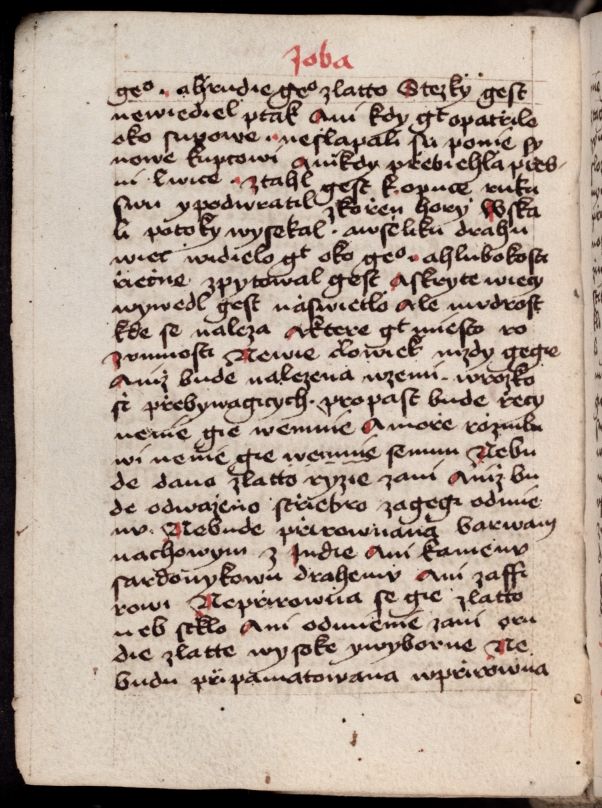 Joba
geo · ahrudie geo zlatto Stezky gest
newiediel ptak Ani kdy gt opatrilo
oko supowe · neslapali su ponie sy
nowe kupcowi Anikdy prebiehla pies
ni lwice · ztahl gest k opuce ruku
swu ypodwratil zkořen hory Wska
li potoky wysekal · awseliku drahu
wiec widielo gt oko geo · ahlubokosti
riečne zpytowal gest Askryte wiecy
wywedl gest naswietlo Ale mudrost
kde se naleza Aktere gt miesto ro
zomnosti Newie člowiek mzdy gegie
Aniž bude nalezena wzemi · wrozko
si přebywagicych · propast bude řecy
nenie gie wemnie Amoře rozmlu
wi nenie gie wemnie semnu Nebu
de dano zlatto ryzie zani Aniž bu
de odwaženo střiebro zagegi odmie
nu · Nebude přirownana barwam
nachowym z Indie Ani kamenu
sardonykowu drahemu Ani zaffi
rowi Nepřirowna se gie zlatto
neb sklo Ani odmienie zani oru
die zlatte wysoke ywyborne Ne
budu připamatowana wpřirowna